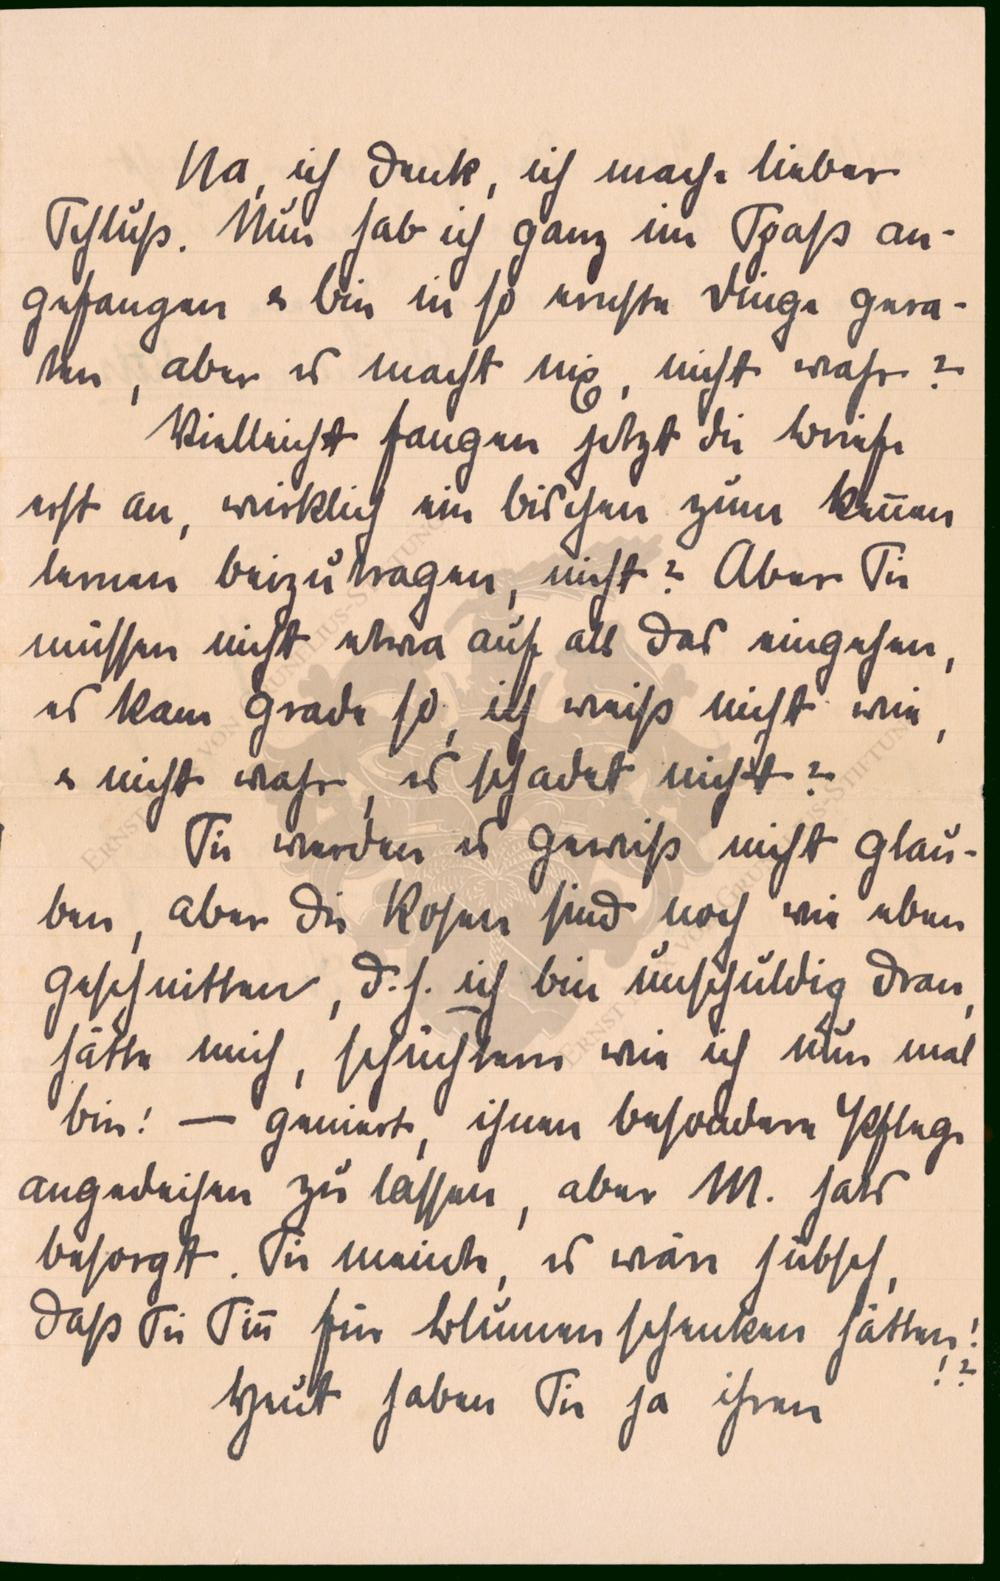 Na, ich denk, ich mache lieber
Schluß. Nun hab ich ganz im Spaß an-
gefangen & bin in so ernste Dinge gera-
ten, aber es macht nix, nicht wahr?
Vielleicht fangen jetzt die Briefe
erst an, wirklich ein bischen zum ken̄en
lernen beizutragen, nicht? Aber Sie
müssen nicht etwa auf all das eingehen,
es kam grade so, ich weiß nicht wie,
& nicht wahr, es schadet nicht?
Sie werden es gewiß nicht glau-
ben, aber die Rosen sind noch wie eben
geschnitten, d.h. ich bin unschuldig dran,
hätte mich, schüchtern wie ich nun mal
bin! — geniert, ihnen besondere Pflege
angedeihen zu lassen, aber M. hats
besorgt. Sie meinte, es wäre hübsch,
daß Sie Sin̄ für Blumen schenken hätten!
!?
Heut haben Sie ja ihren
ERNST VON GRUNELIUS-STIFTUNG
ERNST VON GRUNELIUS-STIFTUNG